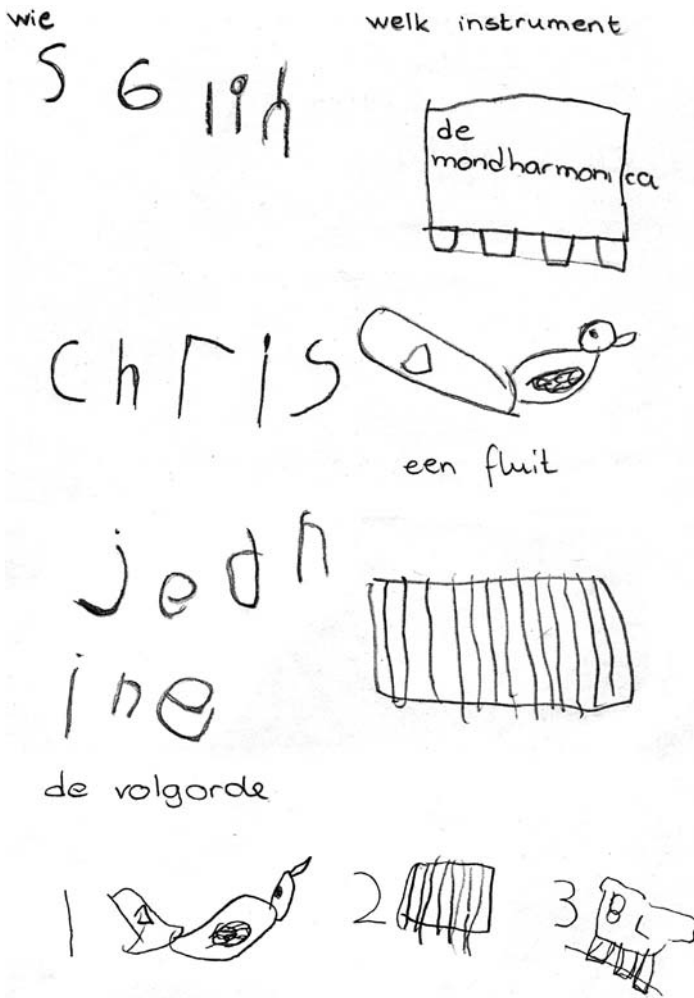 wie
welk instrument
de
mondharmonica
chris
een fluit
jedn
ine
de volgorde
1
2
3
B L